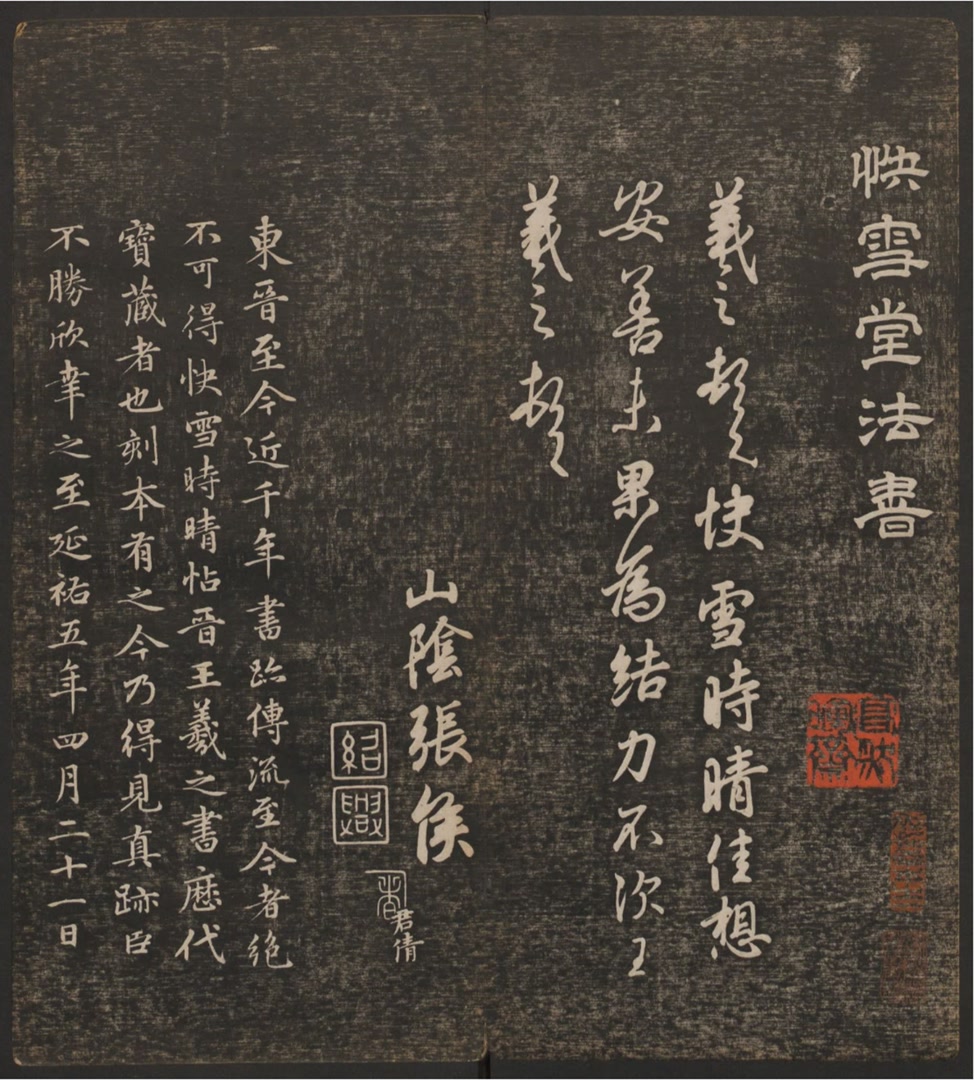 快雪堂法書
羲之頓首快雪時晴佳想
安善未果為結力不次王
羲之頓首
山陰張侯
紹興
君倩
東晉至今近千年書跡傳流至今者絕
不可得快雪時晴帖晉王羲之書歷代
寶藏者也刻本有之今乃得見真跡臣
不勝欣幸之至延祐五年四月二十一日